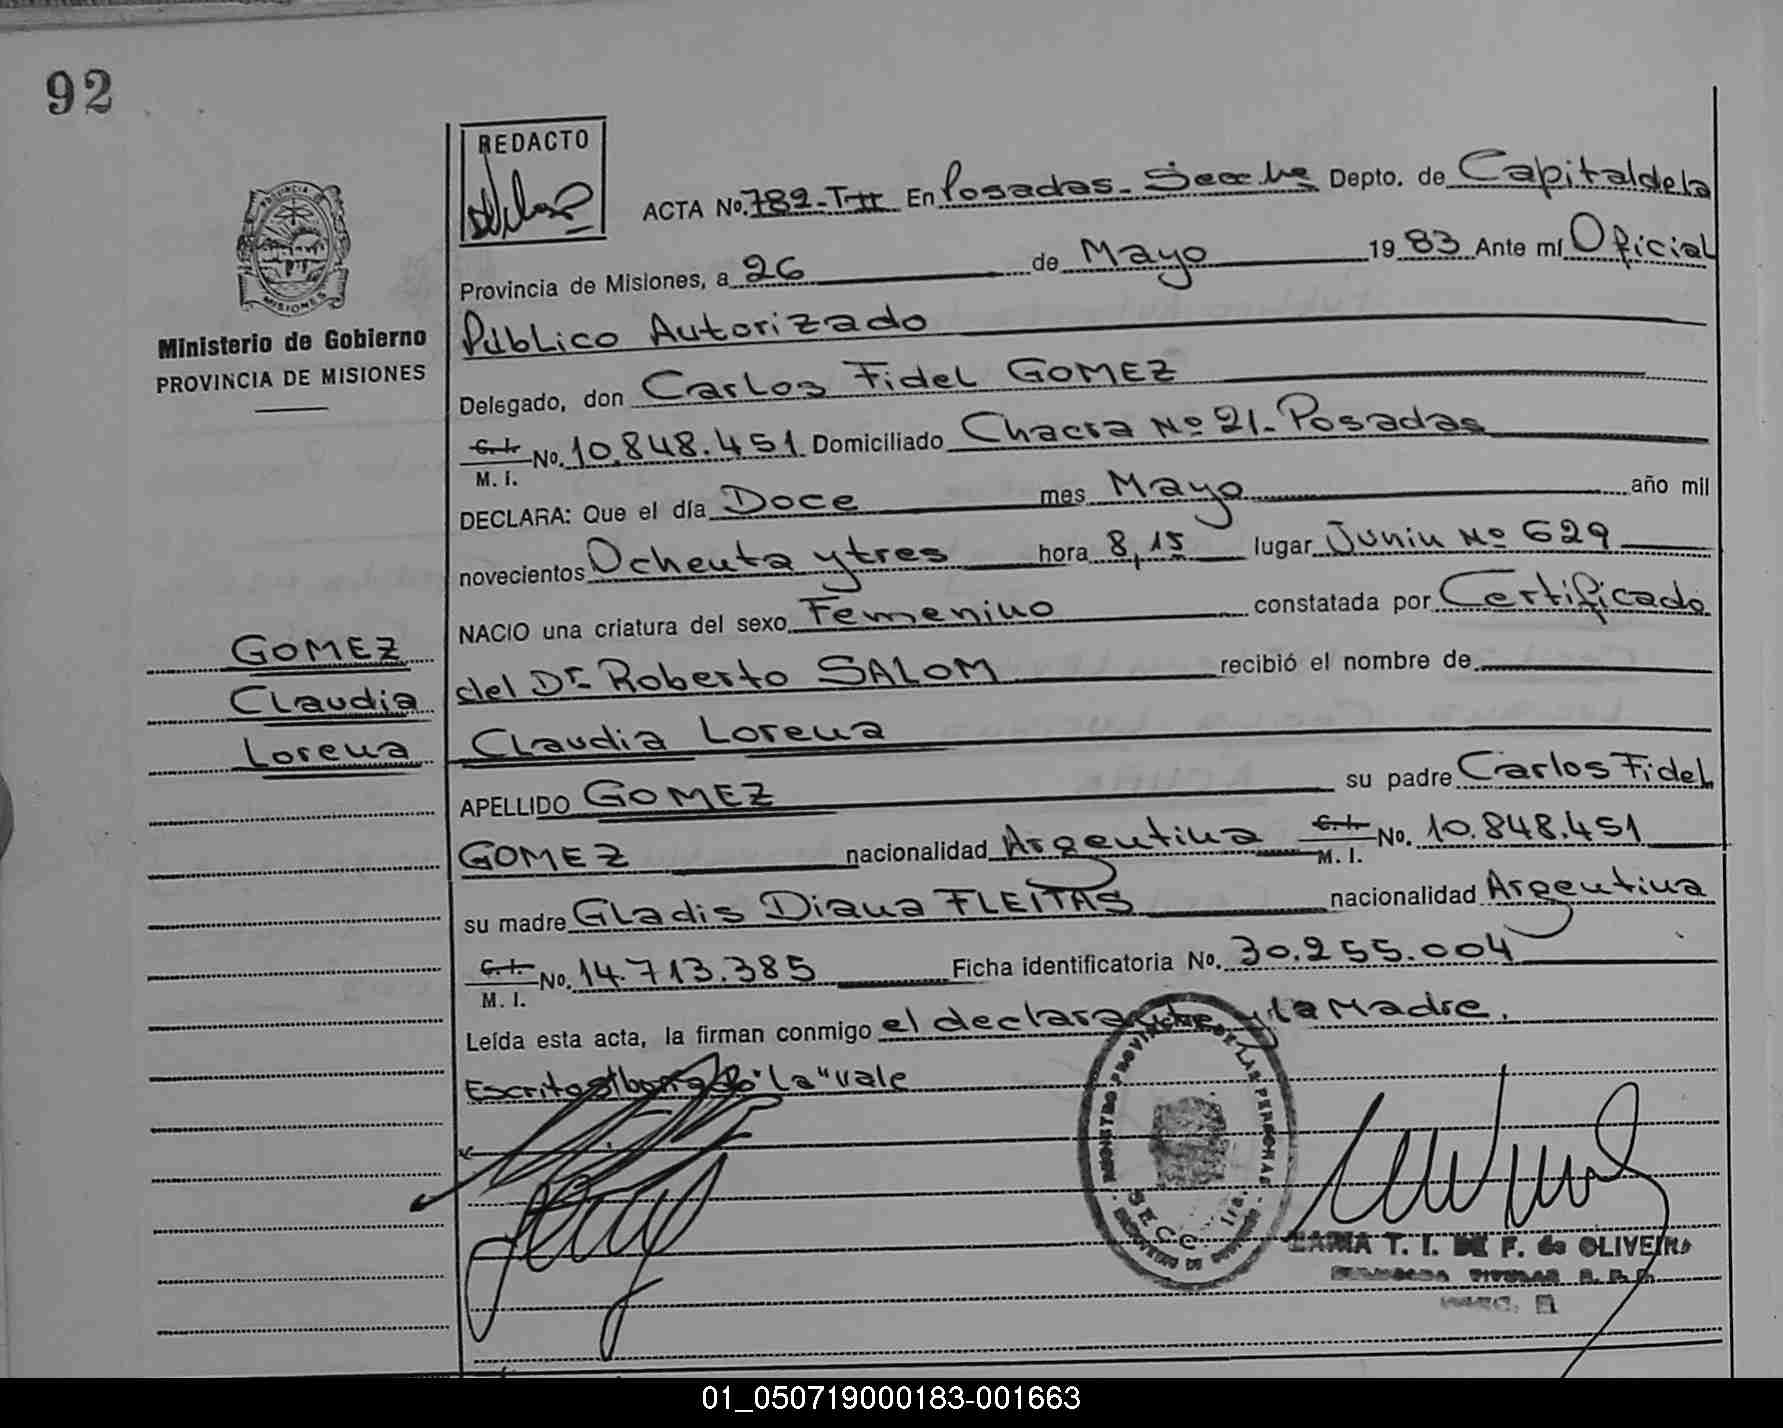 92
REDACTO
PROVINCIA
MISIONES
Ministerio de Gobierno
PROVINCIA DE MISIONES
GOMEZ
Claudia
Lorena
ACTA No. 782-T-II En Posadas- Depto. de Capital de la
Provincia de Misiones, a 26 de Mayo 1983 Ante mí Oficial
Público Autorizado
Delegado, don Carlos Fidel GOMEZ
C.I. M.I. No. 10.848.451 Domiciliado Chacra Nº 21- Posadas
DECLARA: Que el día Doce mes Mayo año mil
novecientos Ochenta y tres hora 8,15 lugar Junin Nº 629
NACIO una criatura del sexo Femenino constatada por Certificado
del Dr. Roberto SALOM recibió el nombre de
Claudia Lorena
APELLIDO GOMEZ su padre Carlos Fidel
GOMEZ nacionalidad Argentina C.I. M.I. No. 10.848.451
su madre Gladis Diana FLEITAS nacionalidad Argentina
C.I. M.I. No. 14.713.385 Ficha identificatoria No. 30.255.004
Leída esta acta, la firman conmigo el declarante y la Madre.
Escrito s/borrado "La" vale
REGISTRO PROVINCIAL DE LAS PERSONAS
SECC. 1ra.
T. I. DE F. de OLIVEIRA
01_050719000183-001663